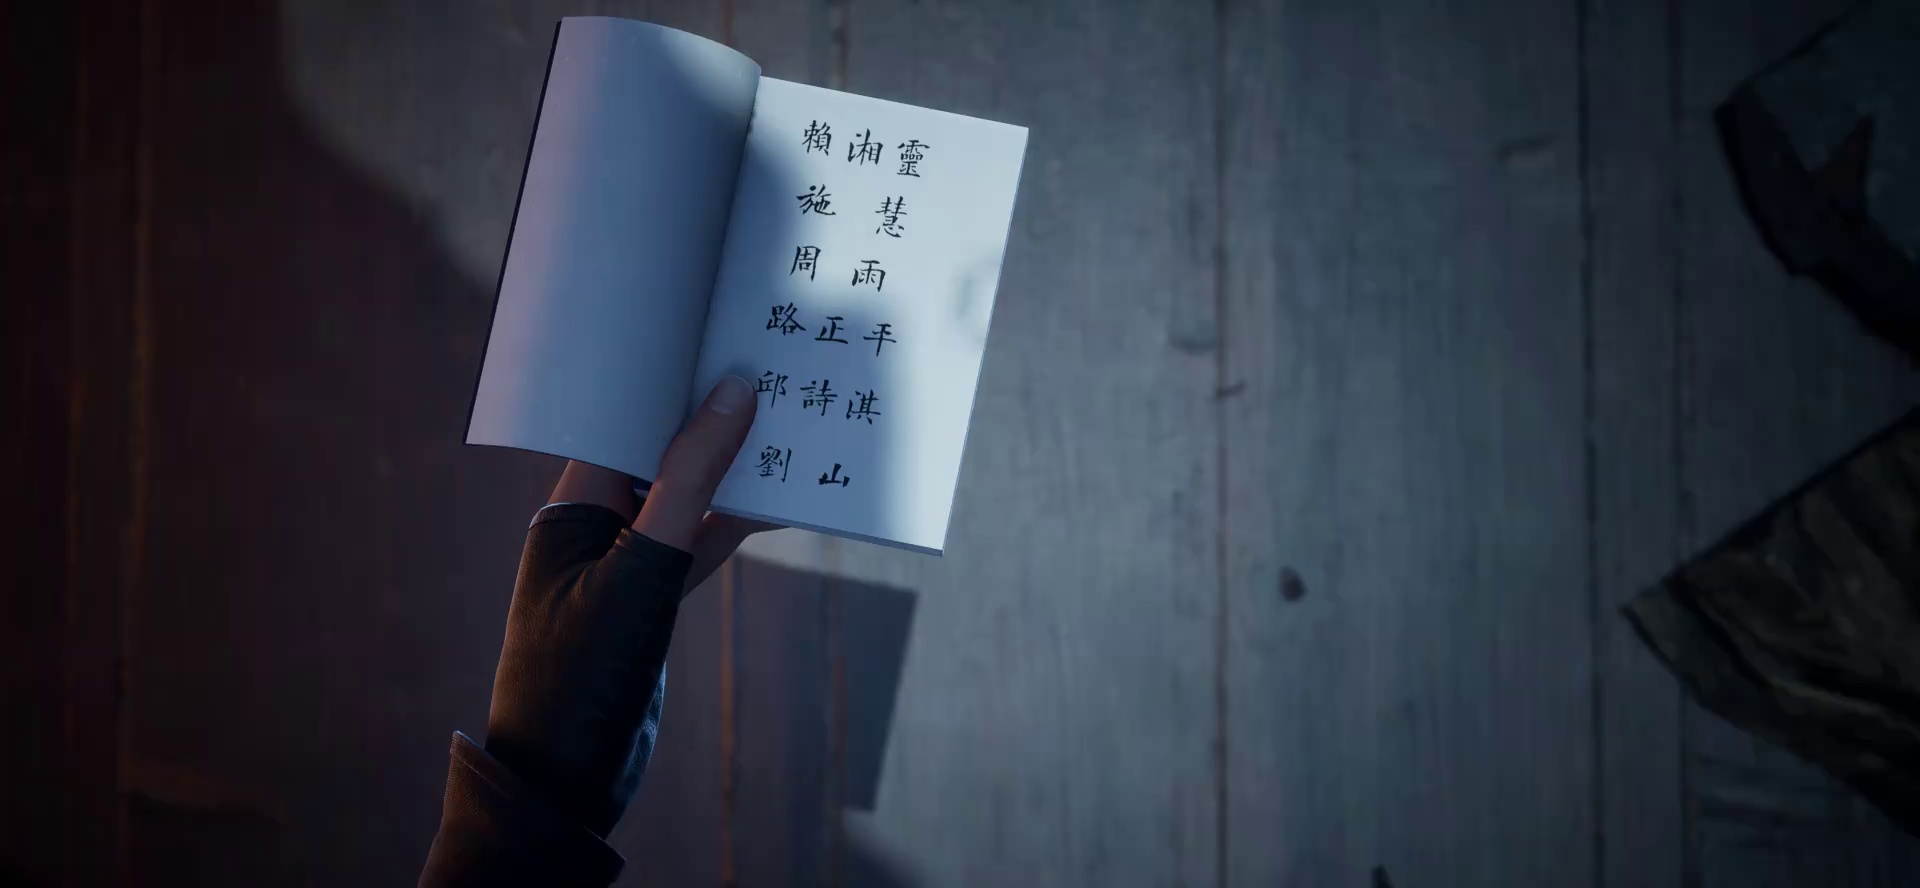 賴湘靈
施慧
周雨
路正平
邱詩淇
劉山